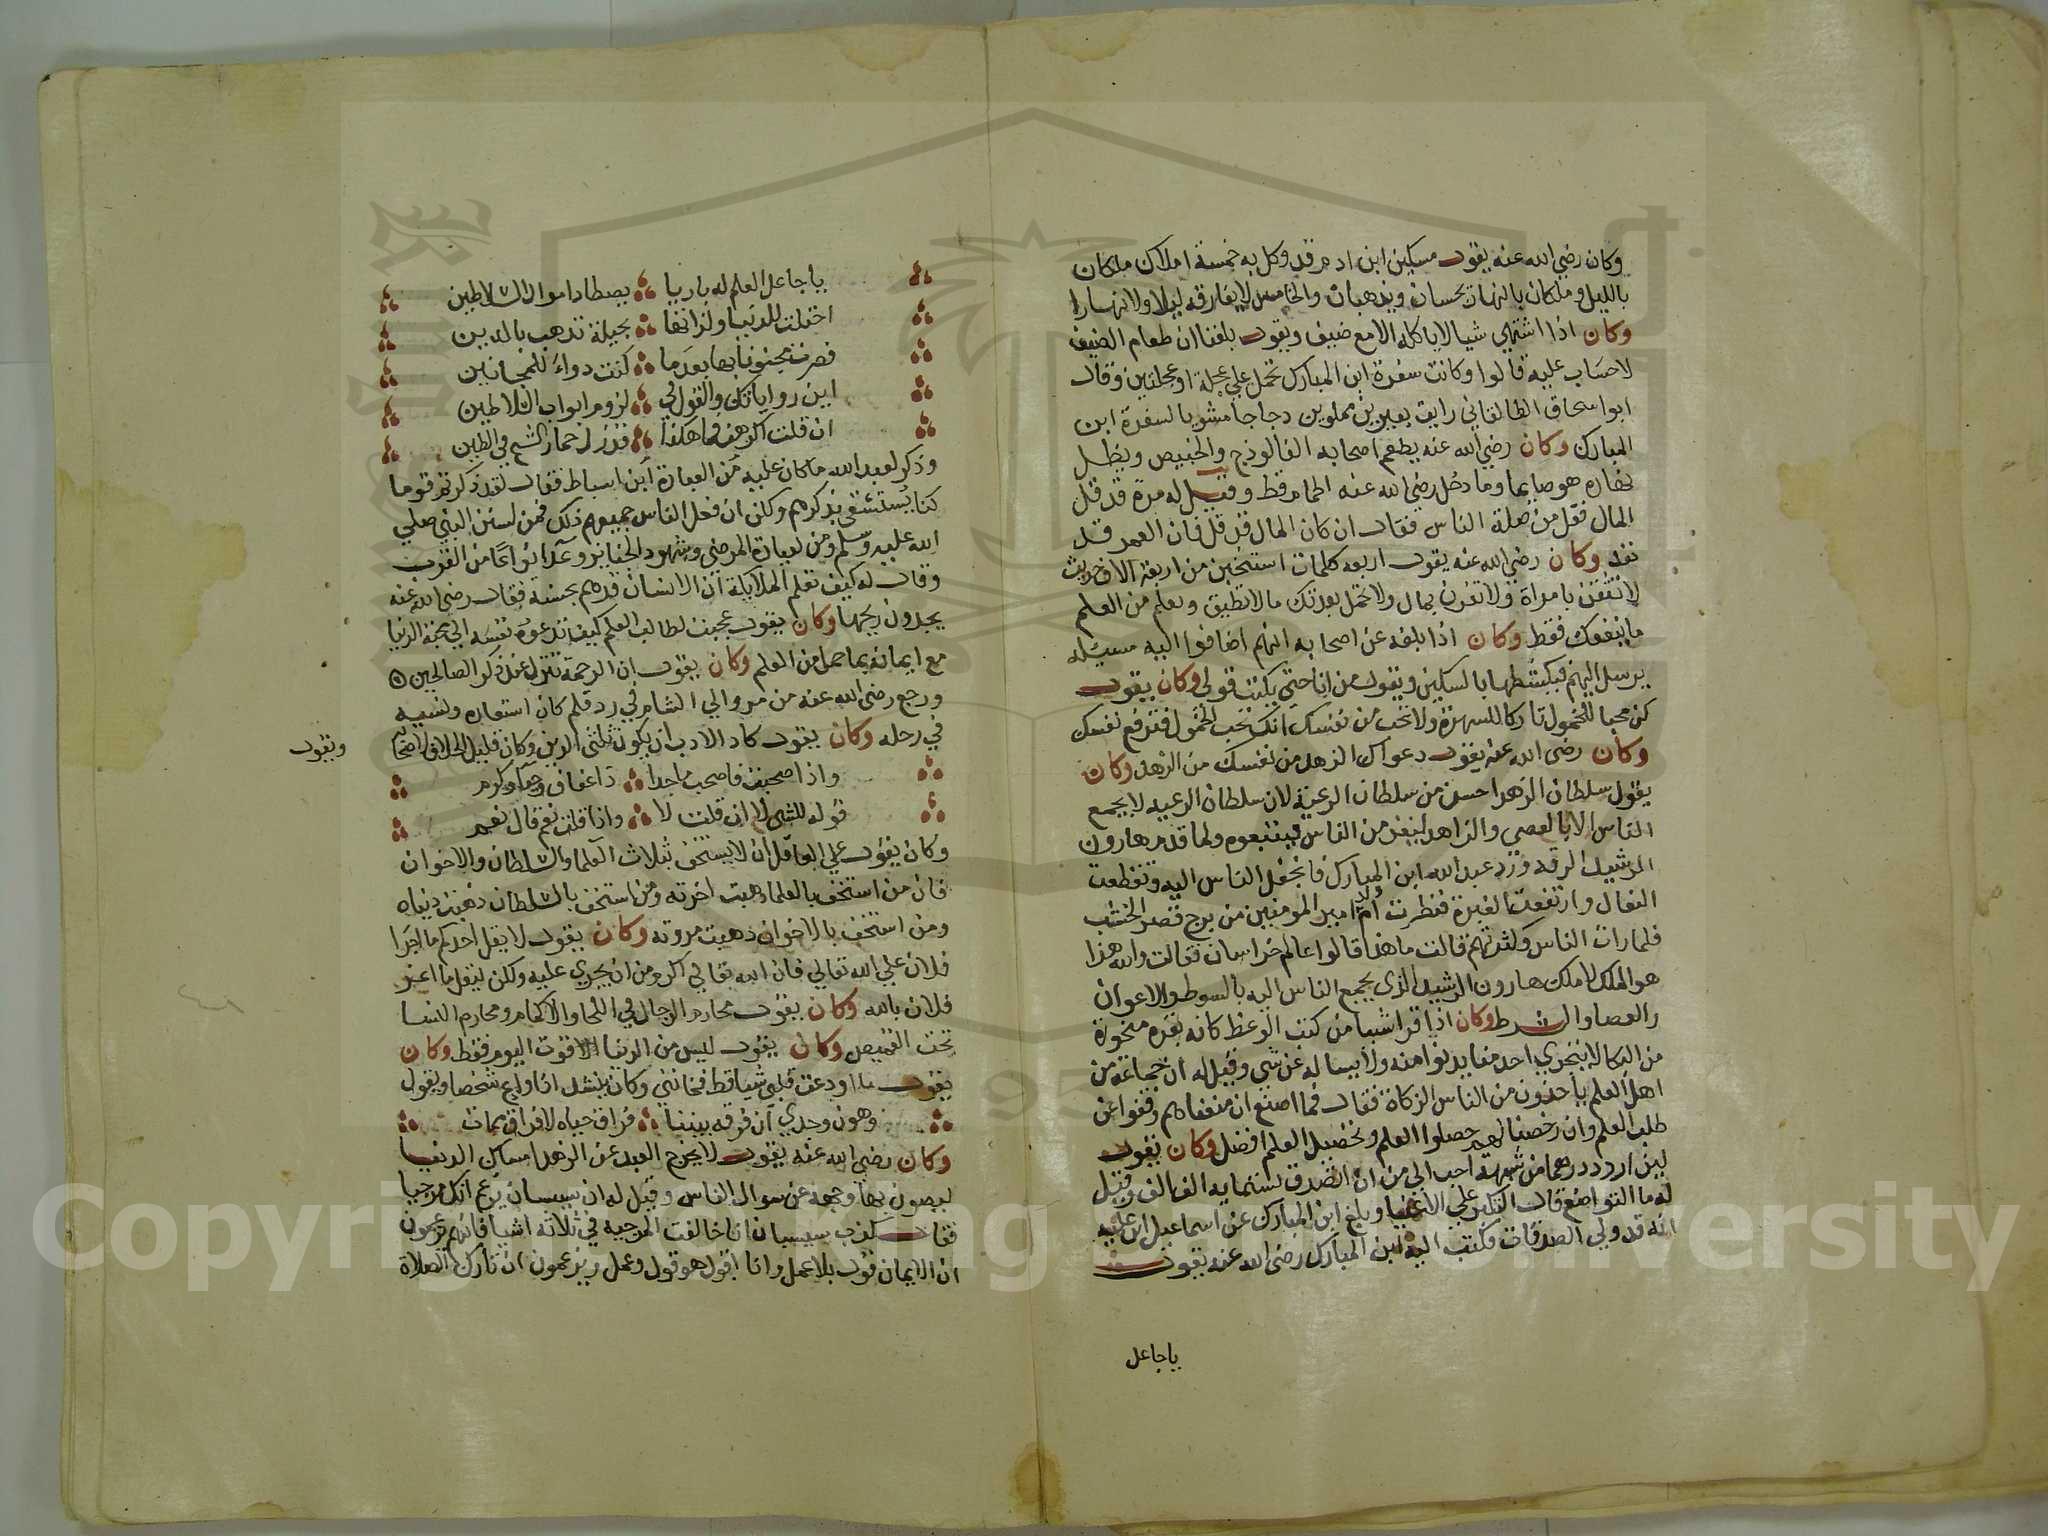 وكان رضي الله عنه يقول مسكين ابن ادم قد وكل به خمسة املاك ملكان
بالليل وملكان بالنهار يجيان ويذهبان والخامس لا يفارقه ليلا ولا نهارا
وكان اذا اشتهي شيا لا ياكله الا مع ضيف ويقول بلغنا ان طعام الضيف
لا حساب عليه قالوا وكانت سفرة ابن المبارك تحمل علي عجلة او عجلتين وقال
ابو اسحاق الطالقاني رايت بعيرين مملوين دجاجا مشويا لسفرة ابن
المبارك وكان رضي الله عنه يطعم اصحابه الفالوذج والخبيص ويظل
نهاره هو صايما وما دخل رضي الله عنه الحمام قط وقيل له مرة قد قل
المال فقل من صلة الناس فقال ان كان المال قد قل فان العمر قد
نفد وكان رضي الله عنه يقول اربعه كلمات استنخبن من اربعة الاف حديث
لا تثقن بامراة ولا تغرن بمال ولا تحمل بعدتك ما لا تطيق وتعلم من العلم
ما ينفعك فقط وكان اذا بلغه عن اصحابه انهم اضافوا اليه مسيله
يرسل اليهم فيكشطها بالسكين ويقول من انا حتي يكتب قولي وكان يقول
كن محبا للخمول تاركا للشهرة ولا تحب من نفسك انك تحب الخمول فترفع نفسك
وكان رضي الله عنه يقول دعواك الزهد من نفسك من الزهد وكان
يقول سلطان الزهد احسن من سلطان الرعية لان سلطان الرعيه لا يجمع
الناس الا بالعصي والزاهد ينفر من الناس فيتبعوه ولما قدم هارون
الرشيد الرقه ورد عبد الله ابن المبارك فانجفل الناس اليه وتقطعت
النعال وارتفعت الغبرة فنظرت ام ولد امير المومنين من برج قصر الخشب
فلما رات الناس وكثرتهم قالت ما هذا قالوا عالم خراسان فقالت والله هذا
هو الملك لا ملك هارون الرشيد الذي يجمع الناس اليه بالسوط والاعوان
والعصا والشرط وكان اذا قرا شيا من كتب الوعظ كانه بقرة منحورة
من البكا لا يتجري احد منا يدنوا منه ولا يساله عن شي وقيل له ان جماعة من
اهل العلم ياخذون من الناس الزكاة فقال فما اصنع ان منعناهم وقفوا عن
طلب العلم وان رخصنا لهم حصلوا العلم وتحصيل العلم افضل وكان يقول
لين ارد درهما من شبهة احب الي من ان اتصدق بستماية الف الف وقيل
له ما التواضع قال التكبر علي الاغنيا وبلغ ابن المبارك عن اسماعيل ابن عليه
انه قد ولي الصدقات فكتب اليه ابن المبارك رضي الله عنه يقول
ياجاعل
ياجاعل العلم له بازيا يصطاد اموال السلاطين
احتلت للدنيا ولذاتها بحيلة تذهب بالدين
فصرت مجنونا بها بعد ما كنت دواء للمجانين
اين رواياتك والقول في لزوم ابواب السلاطين
ان قلت اكرهت فما هكذا قد زل حمار الشيخ في الطين
وذكر لعبد الله ما كان عليه من العبادة ابن اسباط فقال لقد ذكرتم قوما
كنا يستشفي بذكرهم ولكن ان فعل الناس جميعهم ذلك فمن لسنن النبي صلي
الله عليه وسلم ومن لعيادة المرضي وشهود الجنايز وعد انواعا من القرب
وقال له كيف تعلم الملايكة ان الانسان قد هم بحسنة فقال رضي الله عنه
يجدون ريحها وكان يقول عجبت لطالب العلم كيف تدعوه نفسه الي محبة الدنيا
مع ايمانه بما حمل من العلم وكان يقول ان الرحمة تتنزل عند ذكر الصالحين
ورجع رضي الله عنه من مرو الي الشام في رد قلم كان استعاره ونسيه
في رحله وكان يقول كاد الادب ان يكون ثلثي الدين وكان قليل الخلاف لاصحابه
ويقول
واذا صحبت فاصحب ماجدا ذا عفاف وحيا وكرم
قوله للشي لا ان قلت لا واذا قلت نعم قال نعم
وكان يقول علي العاقل ان لا يستخف بثلاث العلما والسلطان والاخوان
فان من استخف بالعلما ذهبت اخرته ومن استخف بالسلطان ذهبت دنياه
ومن استخف بالاخوان ذهبت مروته وكان يقول لا يقل احدكم ما اجرا
فلان علي الله تعالي فان الله تعالي اكرم من ان يجري عليه ولكن ليقل ما اغر
فلان بالله وكان يقول محارم الرجال في اللحا والاكمام ومحارم النسا
تحت القميص وكان يقول ليس من الدنيا الا قوت اليوم فقط وكان
يقول ما اودعت قلبي شيا قط فخانني وكان ينشد اذا ودع شخصا ويقول
وهون وجدي ان فرقه بيننا فراق حياه لا فراق ممات
وكان رضي الله عنه يقول لا يخرج العبد عن الزهد امساك الدنيا
ليصون بها وجهه عن سوال الناس وقيل له ان سيسان يزعم انك مرجيا
فقال كذب سيسان انا خالفت المرجيه في ثلاثه اشيا فانهم يزعمون
ان الايمان قول بلا عمل وانا اقول هو قول وعمل ويزعمون ان تارك الصلاة
Copyright © King Saud University